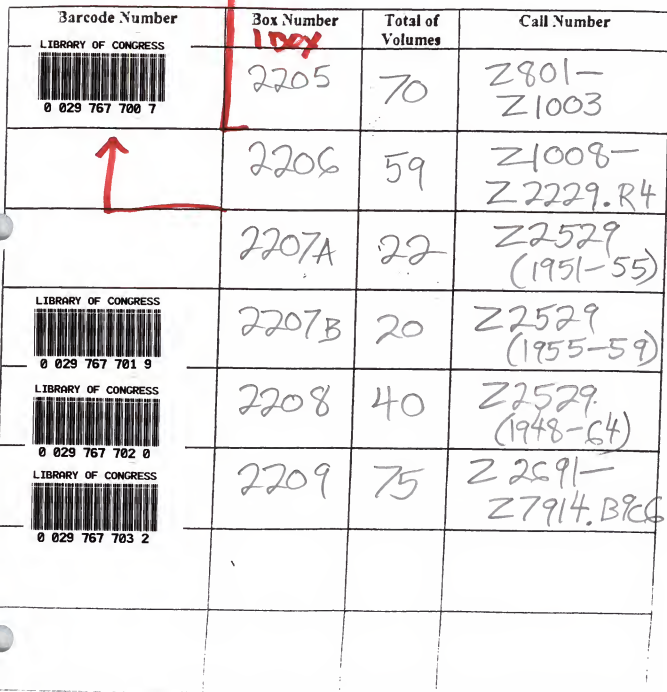 Barcode Number Box Number Total of Volumes Call Number
1 box
LIBRARY OF CONGRESS
0 029 767 700 7
2205 70 Z801–
Z1003
2206 59 Z1008–
Z2229.R4
2207A 22 Z2529
(1951–55)
LIBRARY OF CONGRESS
0 029 767 701 9
2207B 20 Z2529
(1955–59)
LIBRARY OF CONGRESS
0 029 767 702 0
2208 40 Z2529.
(1948–64)
LIBRARY OF CONGRESS
0 029 767 703 2
2209 75 Z2691–
Z7914.B9C6